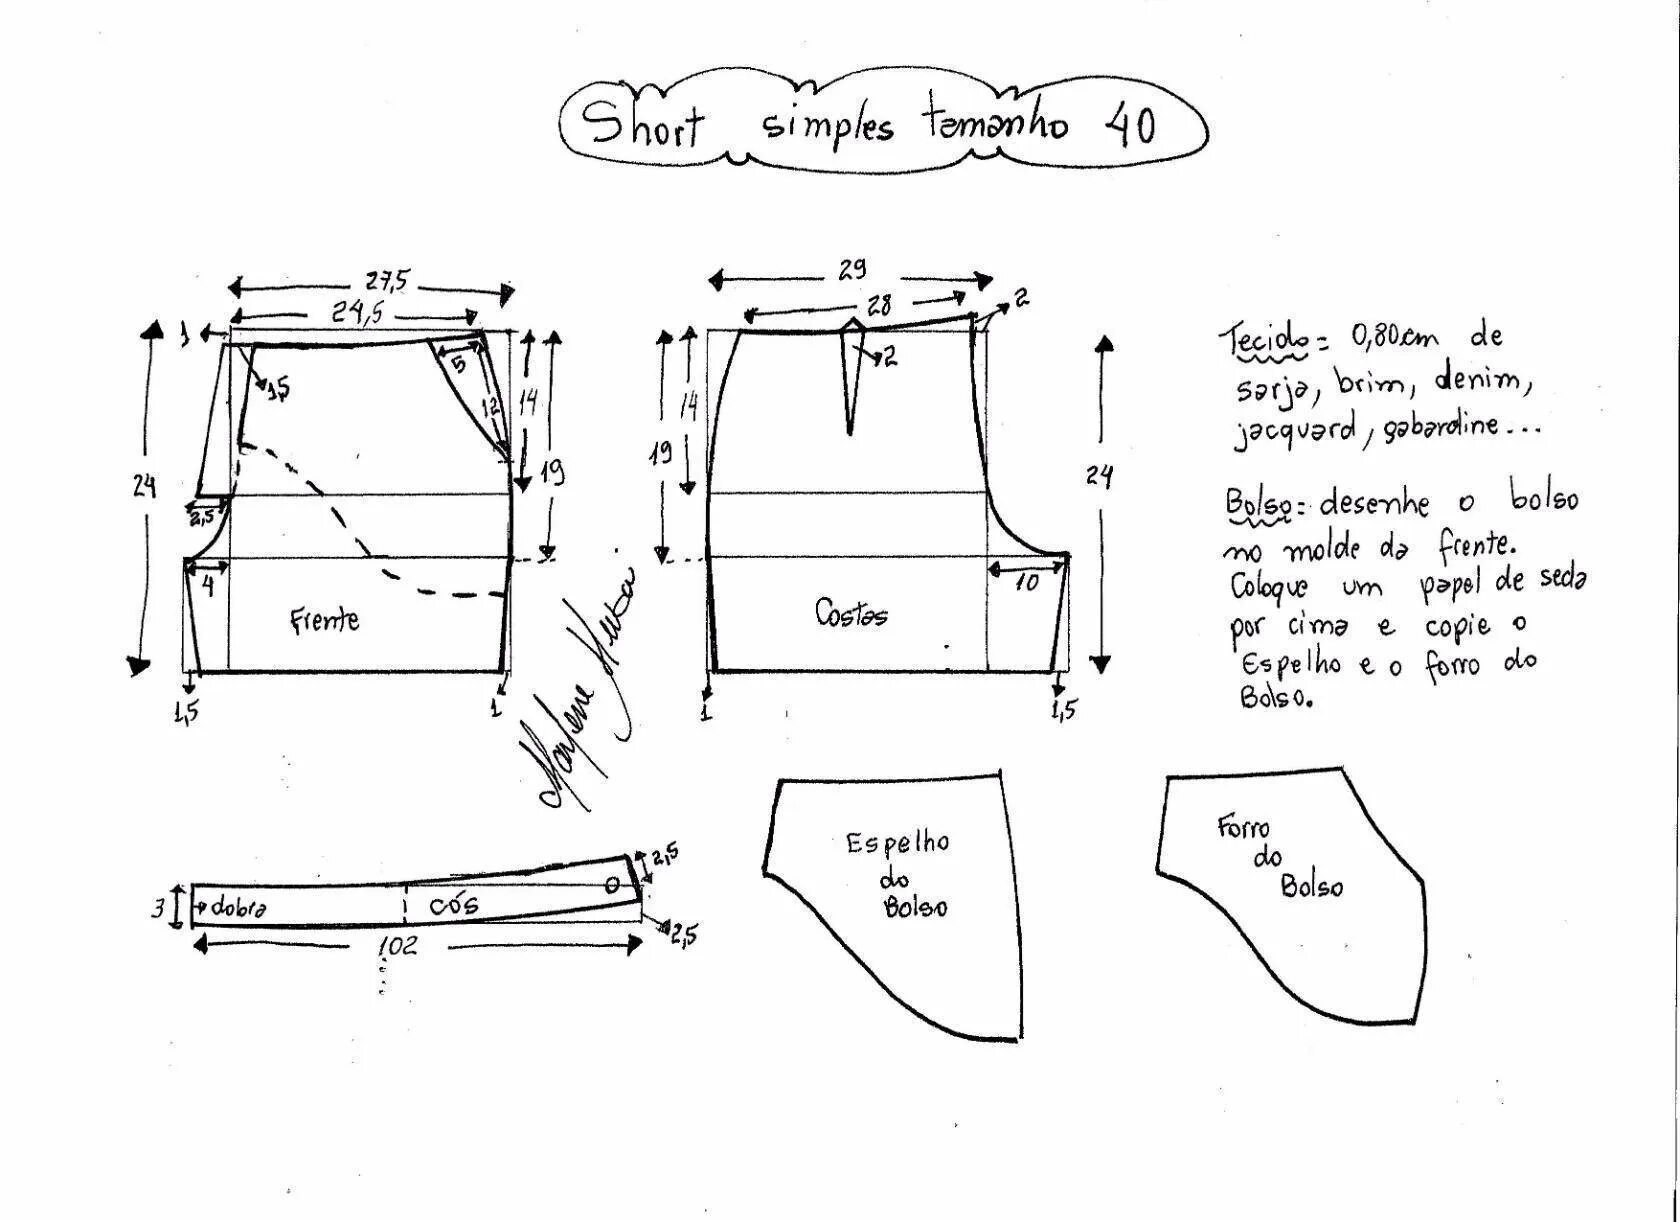 Short simples tamanho 40
27,5
24,5
1
1,5
5
12
14
19
24
2,5
4
Frente
1,5
1
29
28
2
2
14
19
24
10
Costas
1
1,5
Tecido= 0,80cm de
sarja, brim, denim,
jacquard, gabardine...
Bolso= desenhe o bolso
no molde da frente.
Coloque um papel de seda
por cima e copie o
Espelho e o forro do
Bolso.
Marlene Mukai
2,5
3
dobra
cós
102
2,5
Espelho
do
Bolso
Forro
do
Bolso